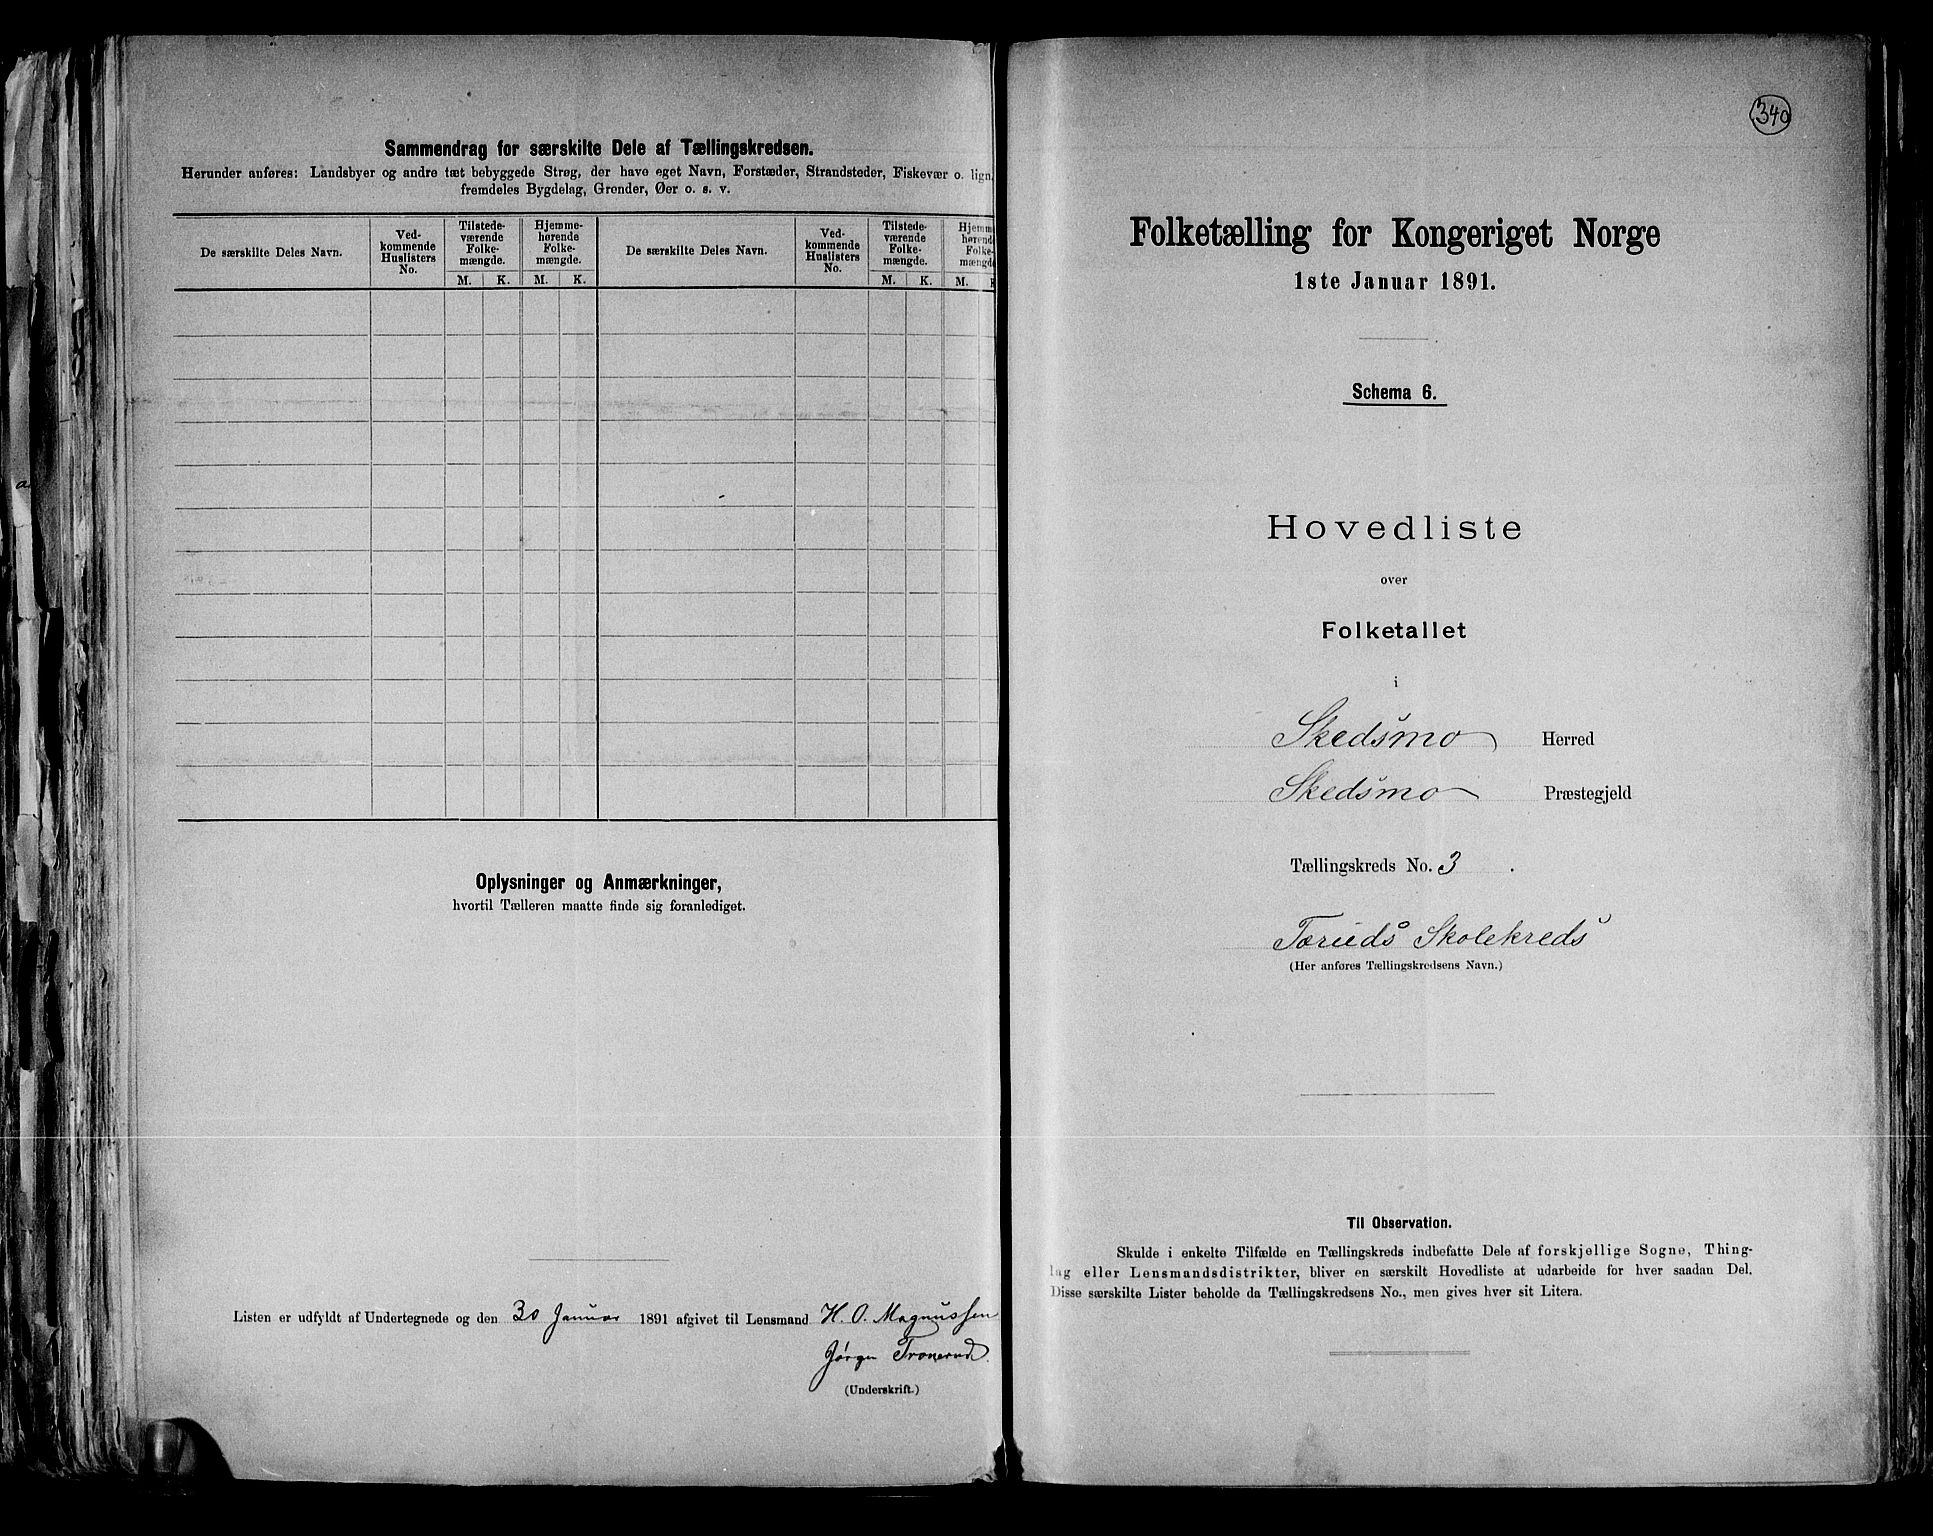 Sammendrag for særskilte Dele af Tællingskredsen.
Herunder anføres: Landsbyer og andre tæt bebyggede Strøg, der have eget Navn, Forstæder, Strandsteder, Fiskevær o. lign.
fremdeles Bygdelag, Grender, Øer o. s. v.
De særskilte Deles Navn.
Ved-
kommende
Huslisters
No.
Tilstede-
værende
Folke-
mængde.
Hjemme-
hørende
Folke-
mængde.
De særskilte Deles Navn.
Ved-
kommende
Huslisters
No.
Tilstede-
værende
Folke-
mængde.
Hjemme
hørende
Folke-
mængde
M. K. M. K. M. K. M. K
Oplysninger og Anmærkninger,
hvortil Tælleren maatte finde sig foranlediget.
Listen er udfyldt af Undertegnede og den 30 Januar 1891 afgivet til Lensmand H. O. Magnussen
Jørgen Tronerud.
(Underskrift.)
340
Folketælling for Kongeriget Norge
1ste Januar 1891.
Schema 6.
Hovedliste
over
Folketallet
i
Skedsmo Herred
Skedsmo Præstegjeld
Tællingskreds No. 3.
Tæruds Skolekreds
(Her anføres Tællingskredsens Navn.)
Til Observation.
Skulde i enkelte Tilfælde en Tællingskreds indbefatte Dele af forskjellige Sogne, Thing-
lag eller Lensmandsdistrikter, bliver en særskilt Hovedliste at udarbeide for hver saadan Del.
Disse særskilte Lister beholde da Tællingskredsens No., men gives hver sit Litera.